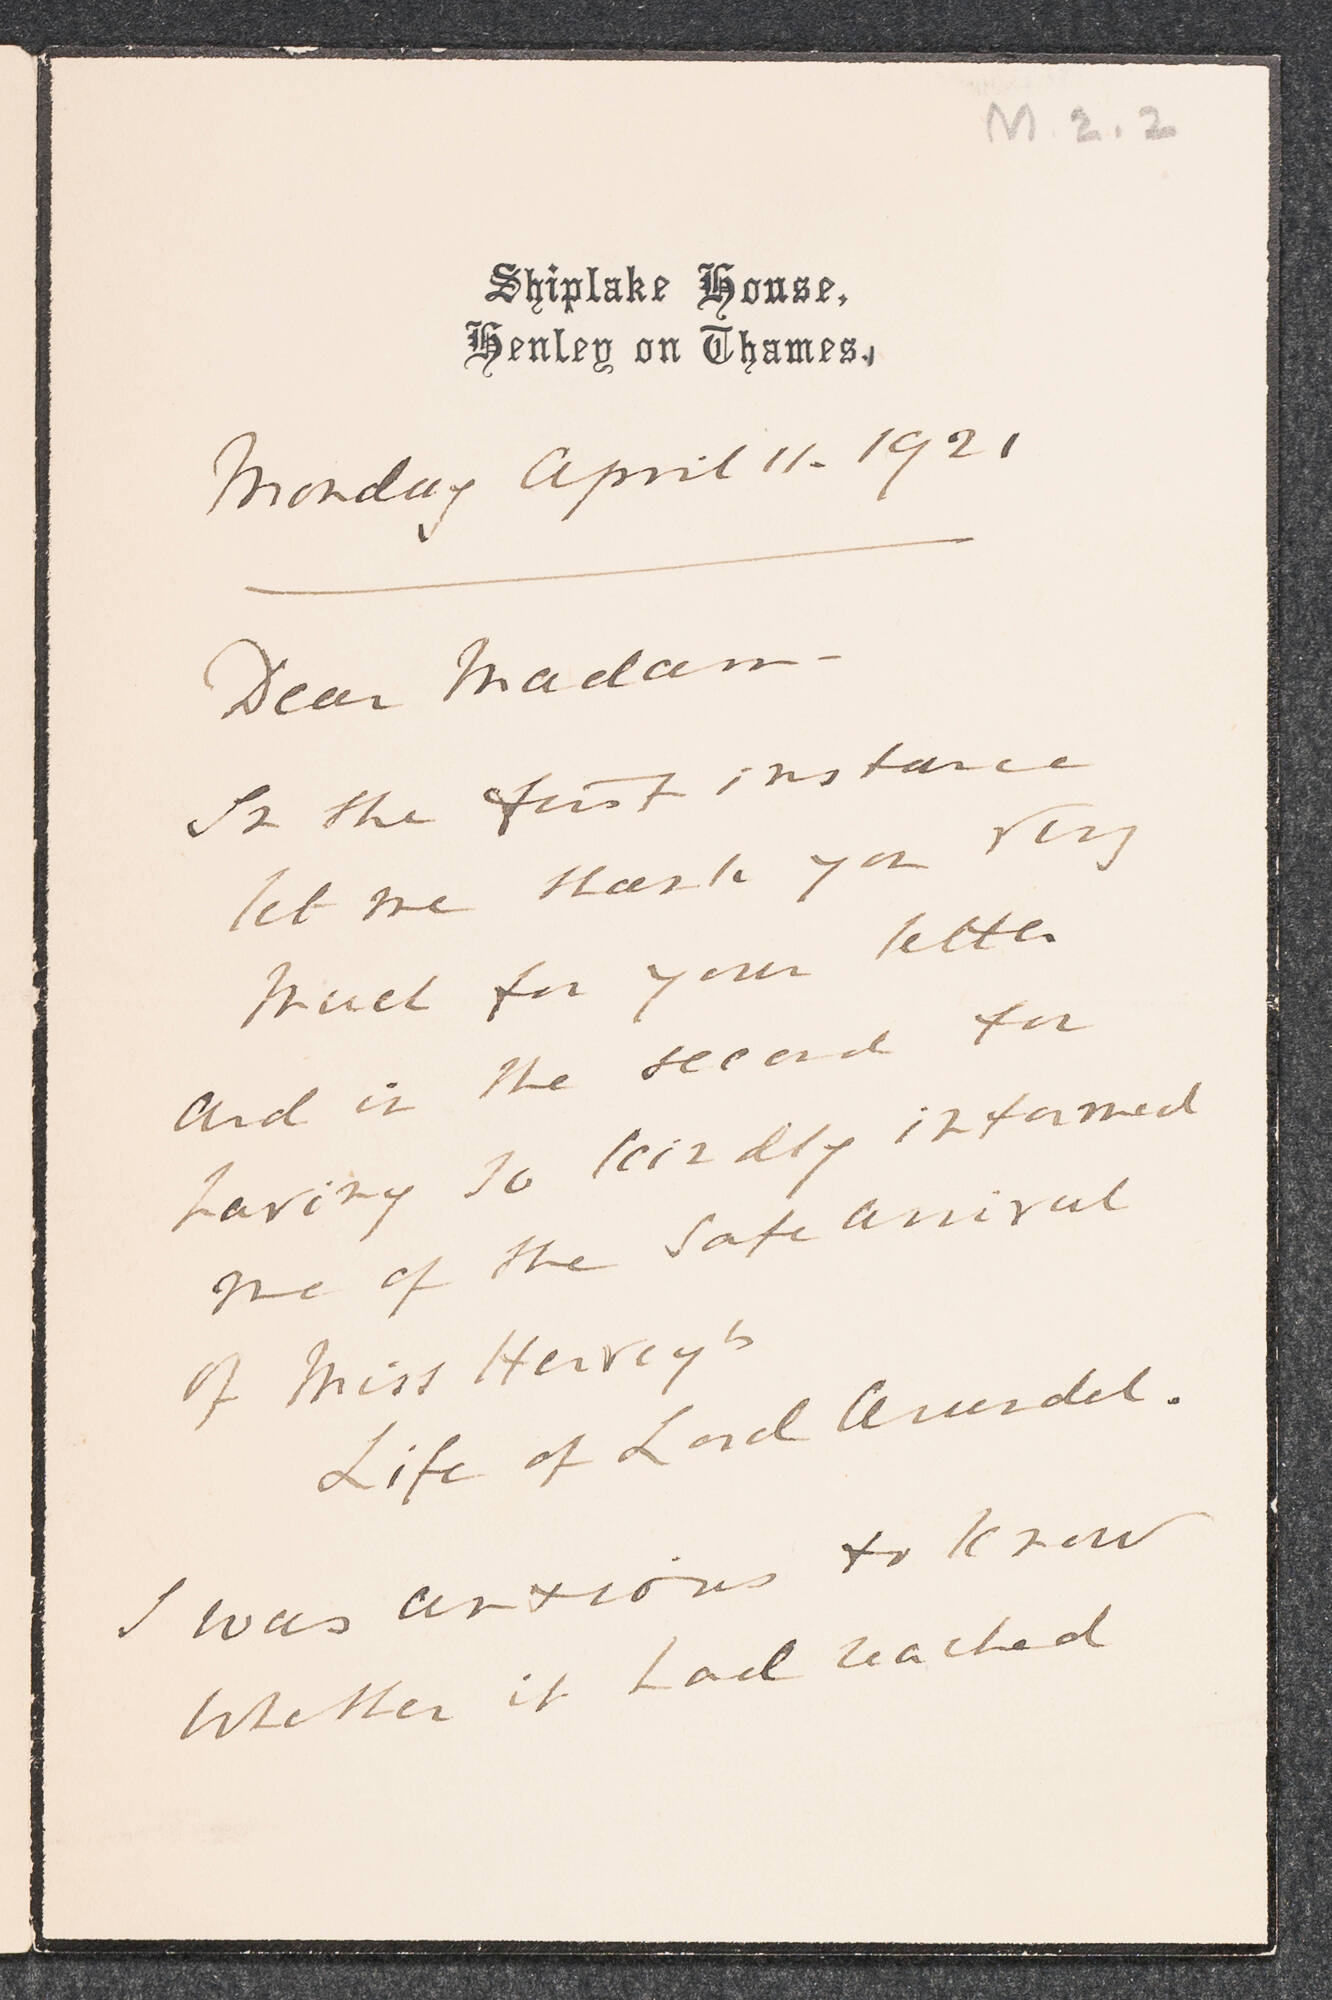 M.2.2
Shiplake House,
Henley on Thames.
Monday April 11. 1921
Dear Madam -
In the first instance
let me thank you very
much for your letter
and in the second for
having so kindly informed
me of the safe arrival
of Miss Hervey's
Life of Lord Arundel.
I was anxious to know
whether it had reached